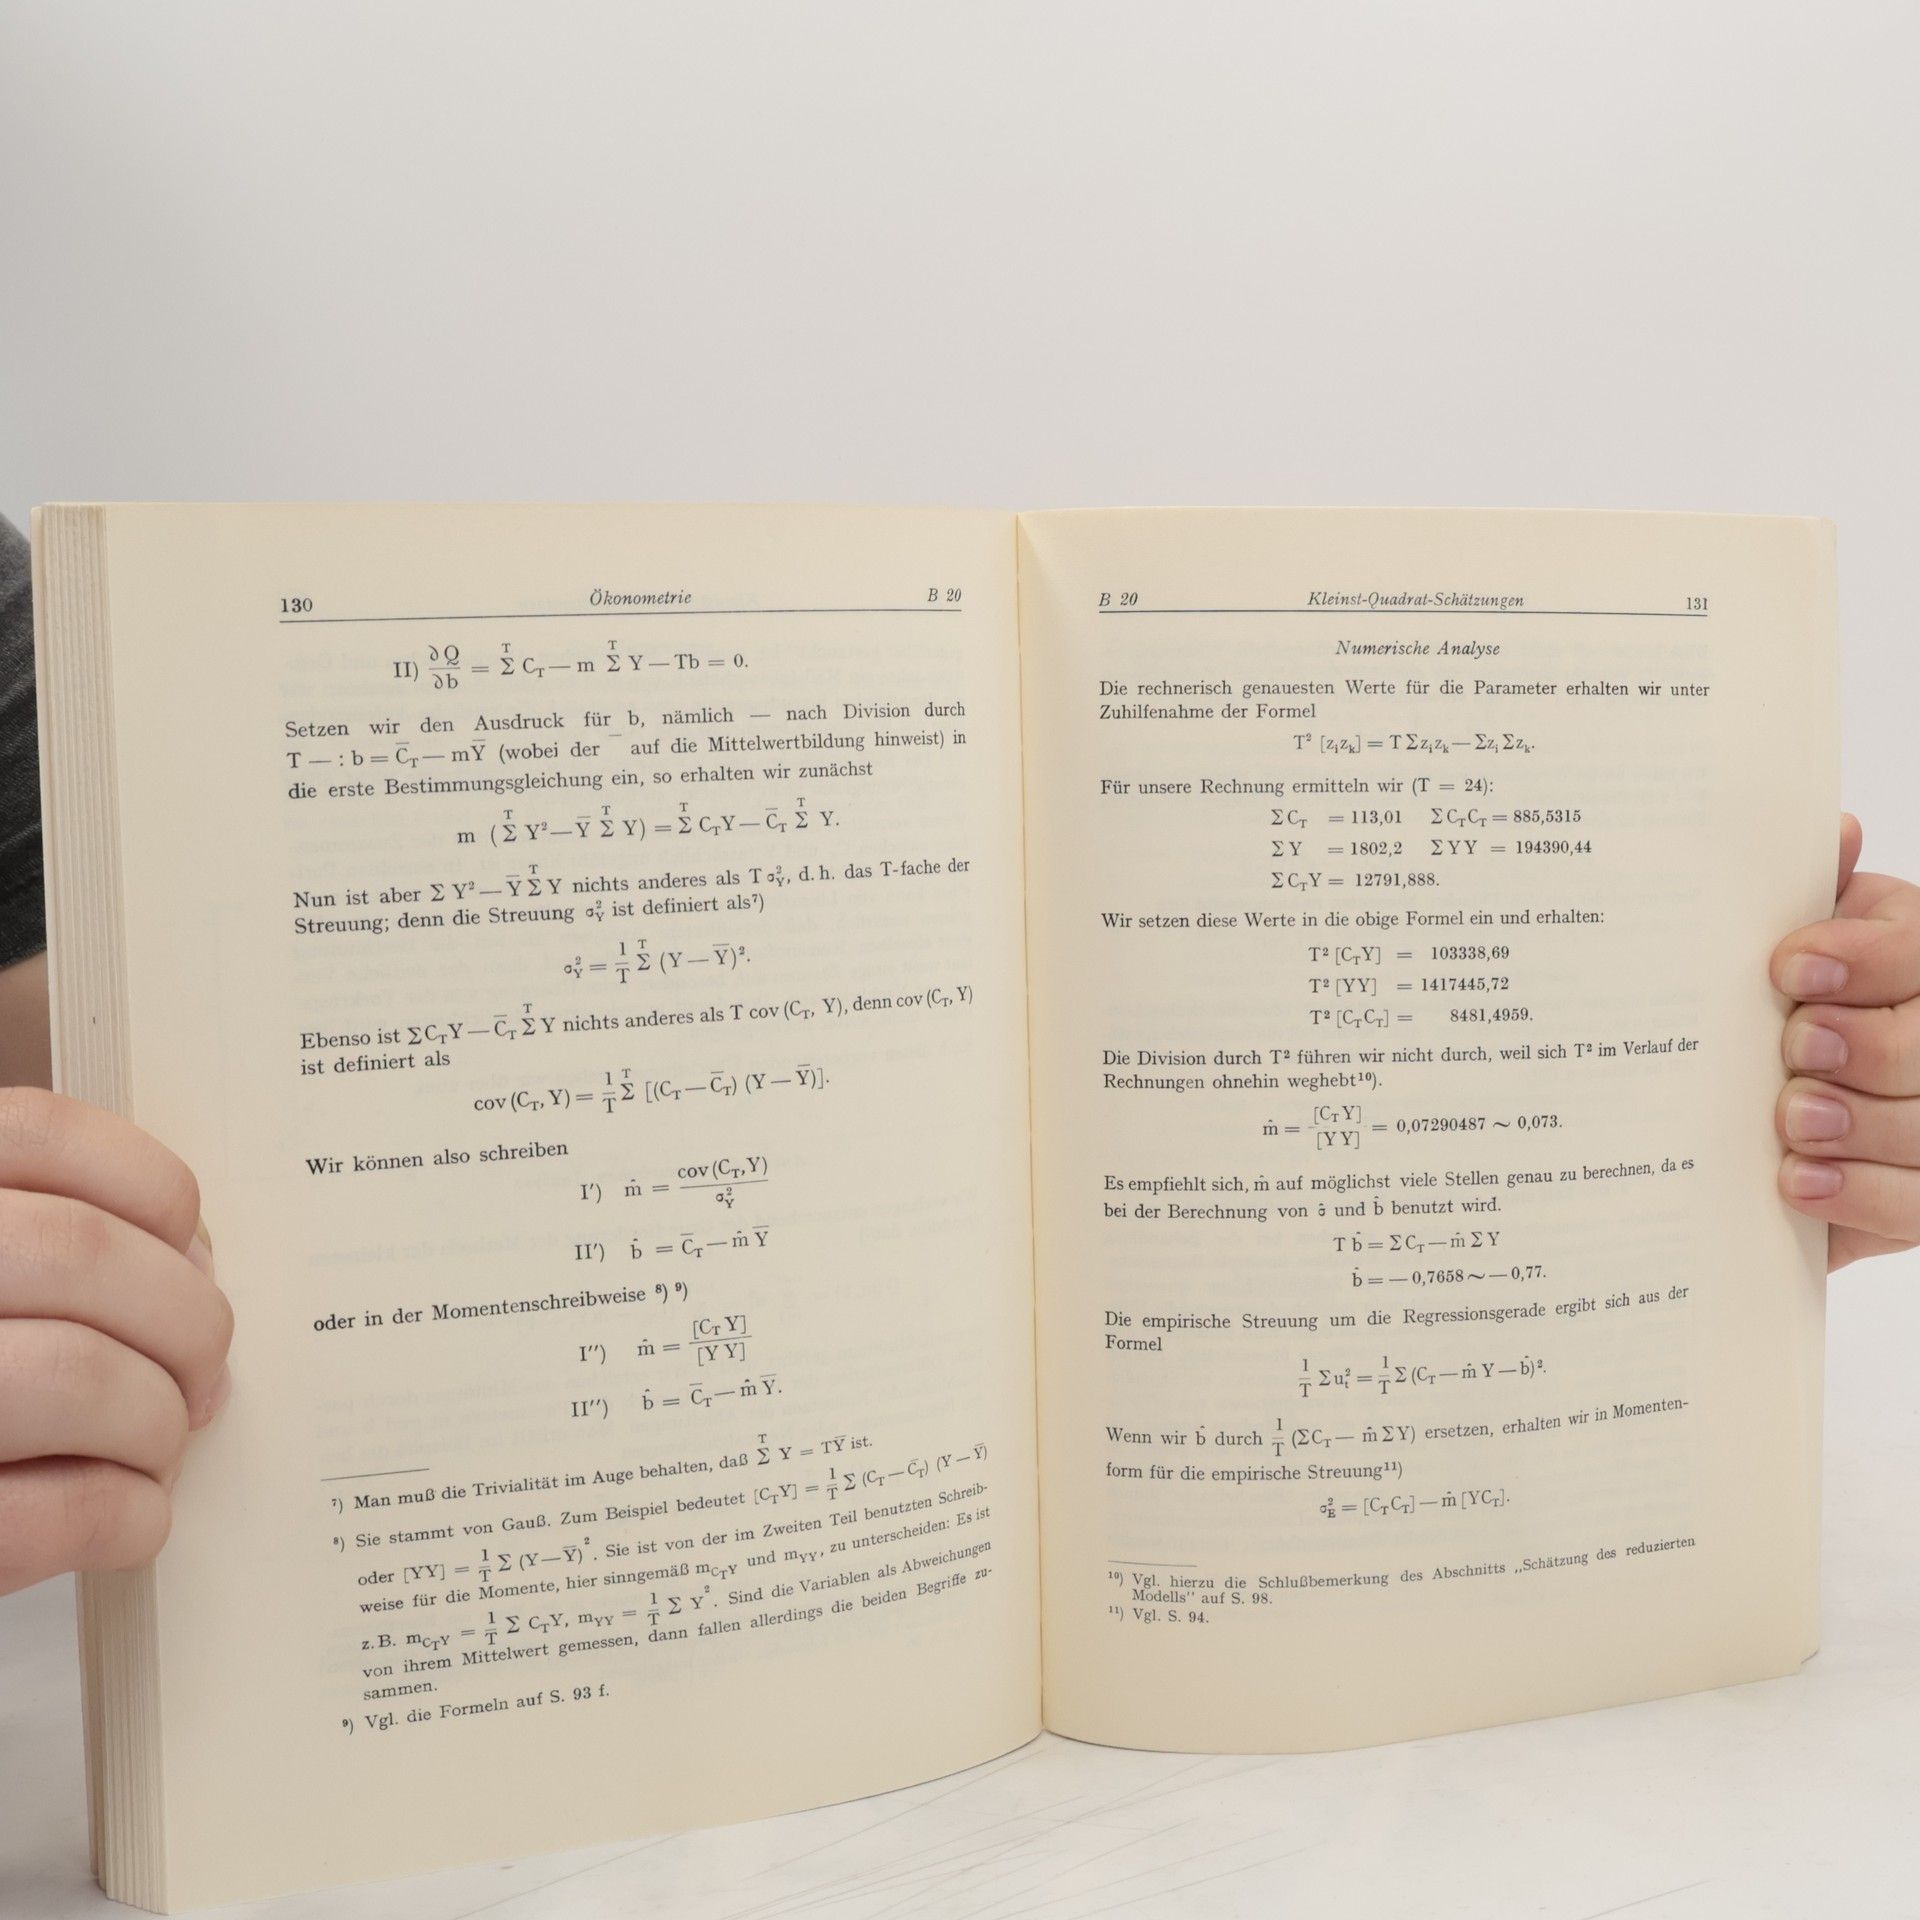 130 Ökonometrie B 20
II) ∂Q/∂b = Σ^T C_T — m Σ^T Y — Tb = 0.
Setzen wir den Ausdruck für b, nämlich — nach Division durch
T — : b = C̅_T — mY̅ (wobei der ¯ auf die Mittelwertbildung hinweist) in
die erste Bestimmungsgleichung ein, so erhalten wir zunächst
m (Σ^T Y² — Y̅ Σ^T Y) = Σ^T C_TY — C̅_T Σ^T Y.
Nun ist aber Σ Y² — Y̅ Σ^T Y nichts anderes als T σ²_Y, d. h. das T-fache der
Streuung; denn die Streuung σ²_Y ist definiert als⁷)
σ²_Y = 1/T Σ^T (Y — Y̅)².
Ebenso ist ΣC_TY — C̅_T Σ^T Y nichts anderes als T cov (C_T, Y), denn cov (C_T, Y)
ist definiert als
cov (C_T, Y) = 1/T Σ^T [(C_T — C̅_T) (Y — Y̅)].
Wir können also schreiben
I′) m̂ = cov (C_T, Y)/σ²_Y
II′) b̂ = C̅_T — m̂ Y̅
oder in der Momentenschreibweise ⁸) ⁹)
I′′) m̂ = [C_T Y]/[Y Y]
II′′) b̂ = C̅_T — m̂ Y̅.
⁷) Man muß die Trivialität im Auge behalten, daß Σ^T Y = TY̅ ist.
⁸) Sie stammt von Gauß. Zum Beispiel bedeutet [C_TY] = 1/T Σ (C_T — C̅_T) (Y — Y̅)
oder [YY] = 1/T Σ (Y — Y̅)². Sie ist von der im Zweiten Teil benutzten Schreib-
weise für die Momente, hier sinngemäß m_C_TY und m_YY, zu unterscheiden: Es ist
z. B. m_C_TY = 1/T Σ C_TY, m_YY = 1/T Σ Y². Sind die Variablen als Abweichungen
von ihrem Mittelwert gemessen, dann fallen allerdings die beiden Begriffe zu-
sammen.
⁹) Vgl. die Formeln auf S. 93 f.
B 20 Kleinst-Quadrat-Schätzungen 131
Numerische Analyse
Die rechnerisch genauesten Werte für die Parameter erhalten wir unter
Zuhilfenahme der Formel
T² [z_iz_k] = T Σz_iz_k — Σz_i Σz_k.
Für unsere Rechnung ermitteln wir (T = 24):
ΣC_T = 113,01 ΣC_TC_T = 885,5315
ΣY = 1802,2 ΣYY = 194390,44
ΣC_TY = 12791,888.
Wir setzen diese Werte in die obige Formel ein und erhalten:
T² [C_TY] = 103338,69
T² [YY] = 1417445,72
T² [C_TC_T] = 8481,4959.
Die Division durch T² führen wir nicht durch, weil sich T² im Verlauf der
Rechnungen ohnehin weghebt¹⁰).
m̂ = [C_T Y]/[Y Y] = 0,07290487 ∼ 0,073.
Es empfiehlt sich, m̂ auf möglichst viele Stellen genau zu berechnen, da es
bei der Berechnung von σ̂ und b̂ benutzt wird.
T b̂ = ΣC_T — m̂ ΣY
b̂ = — 0,7658 ∼ — 0,77.
Die empirische Streuung um die Regressionsgerade ergibt sich aus der
Formel
1/T Σu²_t = 1/T Σ (C_T — m̂ Y — b̂)².
Wenn wir b̂ durch 1/T (ΣC_T — m̂ ΣY) ersetzen, erhalten wir in Momenten-
form für die empirische Streuung¹¹)
σ²_E = [C_T C_T] — m̂ [YC_T].
¹⁰) Vgl. hierzu die Schlußbemerkung des Abschnitts „Schätzung des reduzierten
Modells" auf S. 98.
¹¹) Vgl. S. 94.